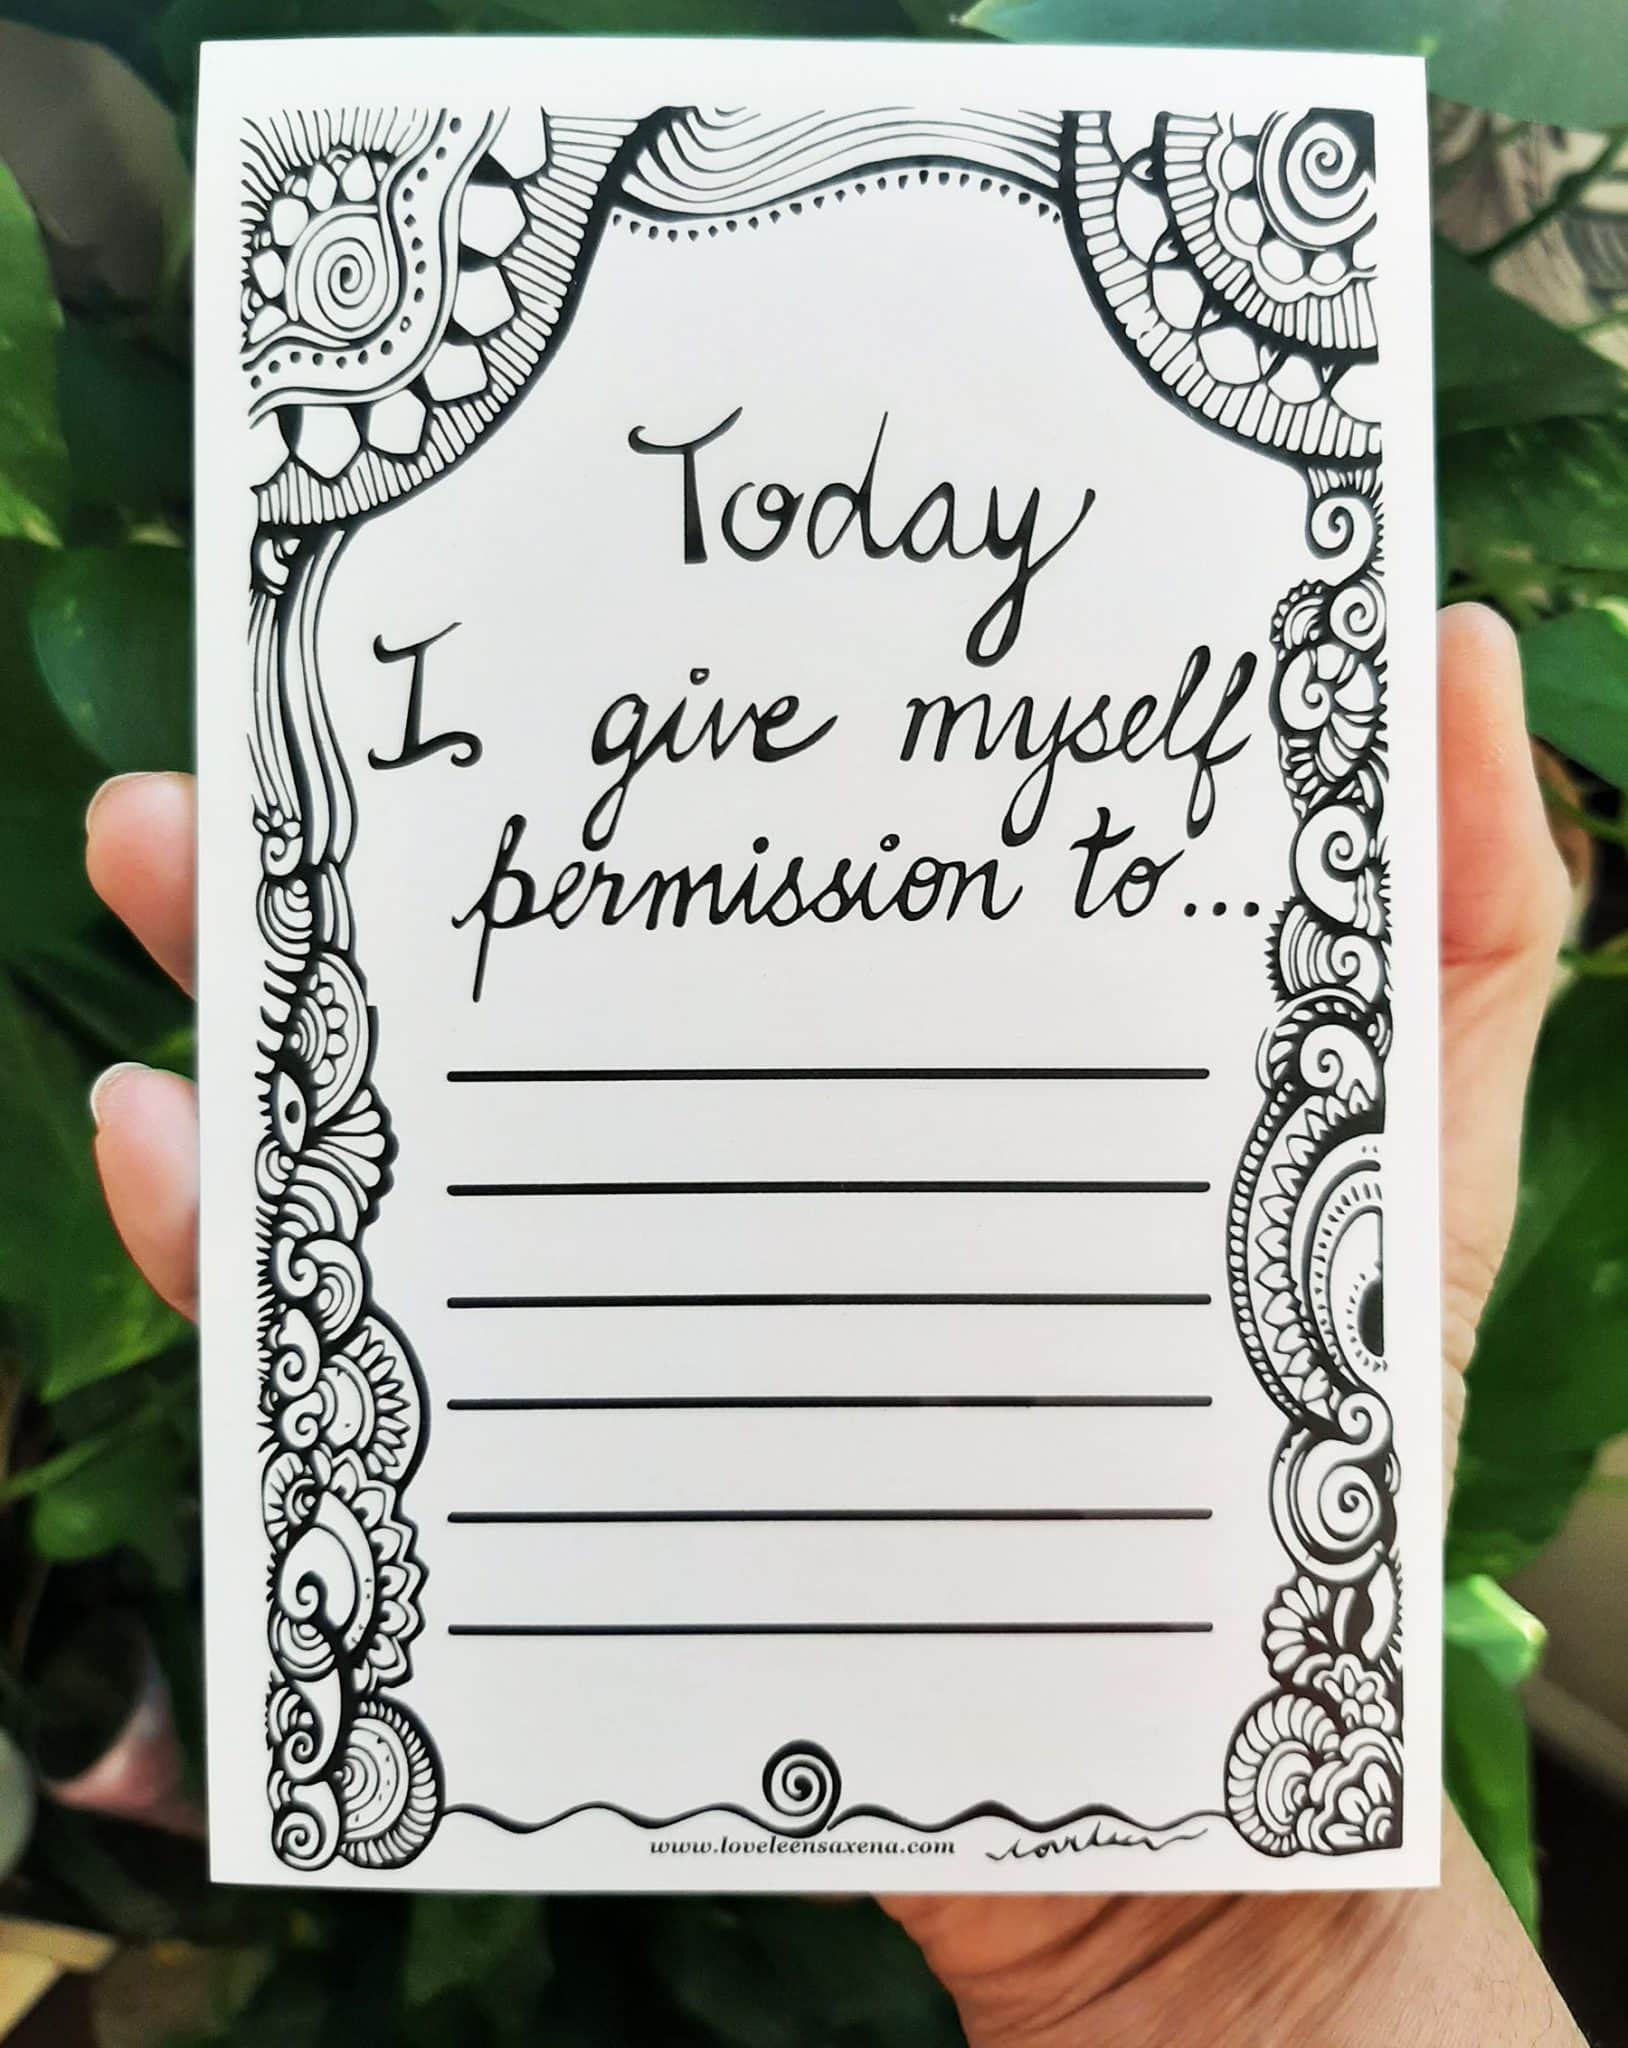 Today
I give myself
permission to...
www.loveleensaxena.com
loveleen